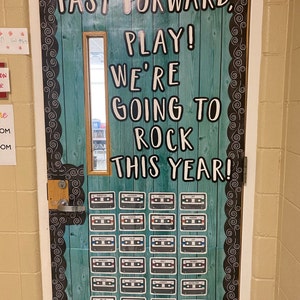 FAST FORWARD,
PLAY!
WE'RE
GOING TO
ROCK
THIS YEAR!